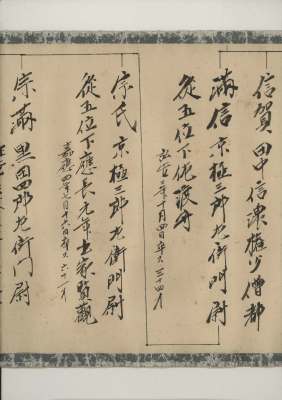 信賀 田中信濃權少僧都
滿信 京極三郎左衛門尉
從五位下佐渡守
年十月四日卒ス 三十四才
宗氏 京極三郎左衛門尉
從五位下應長元年出家賢觀
嘉暦四年七月十六日卒ス 六十一才
宗滿 黒田四郎左衛門尉